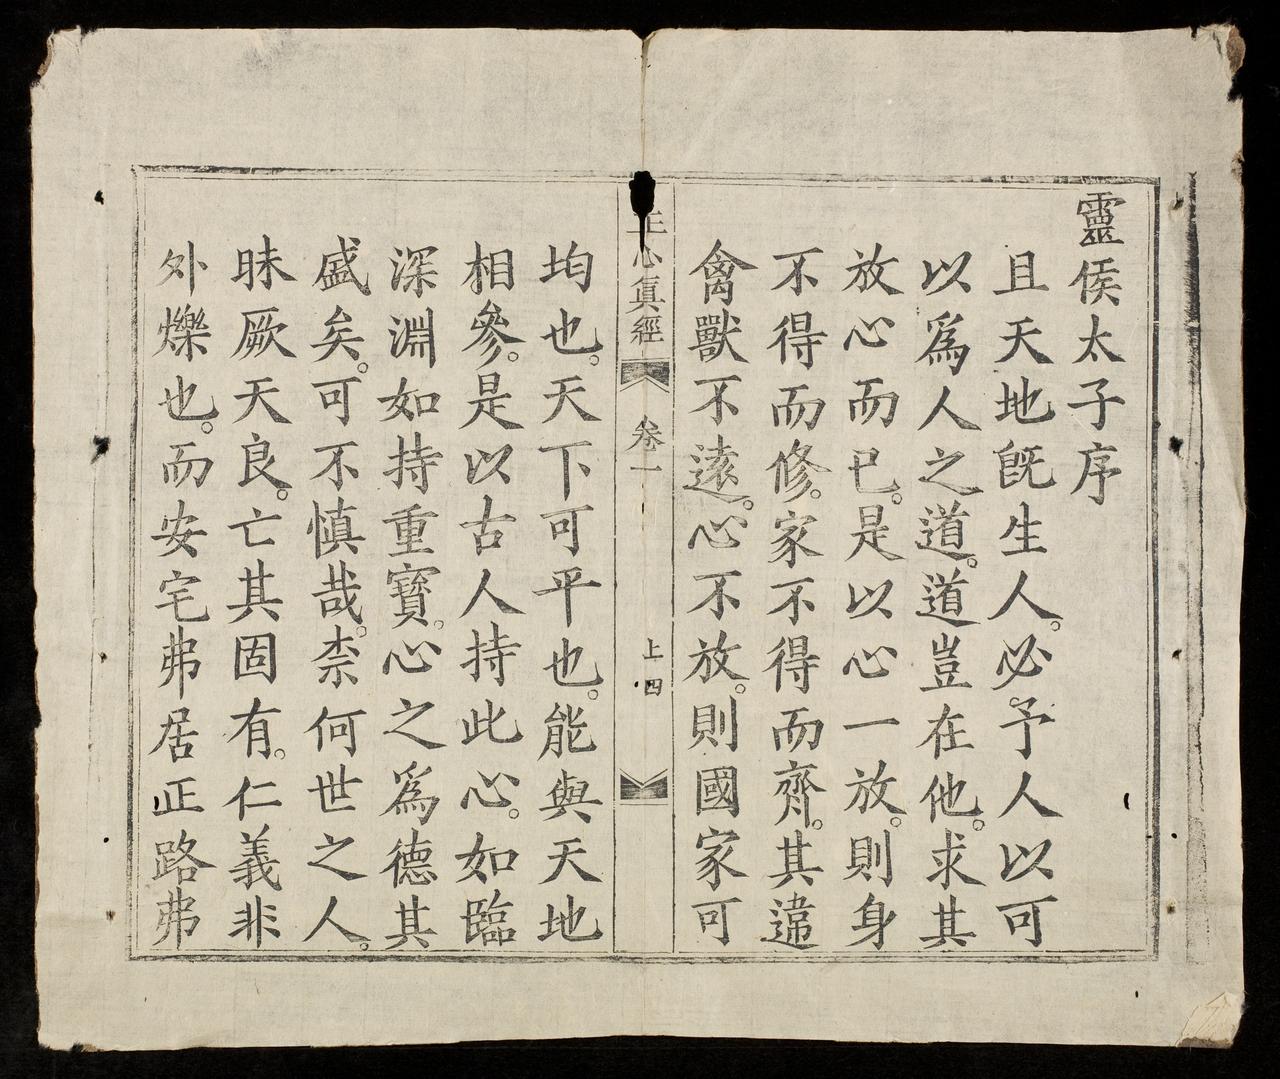 靈侯太子序
且天地旣生人。必。予人以可
以爲人之道。道豈在他。求其
放心而已。是以心一放。則身
不得而修。家不得而齊。其違
禽獸不遠。心不放。則國家可
正心眞經 卷一 上 四
均也。天下可平也。能與天地
相參。是以古人持此心。如臨
深淵如持重寶。心之爲德其
盛矣。可不慎哉。柰何世之人。
昧厥天良。亡其固有。仁義非
外爍也。而安宅弗居正路弗